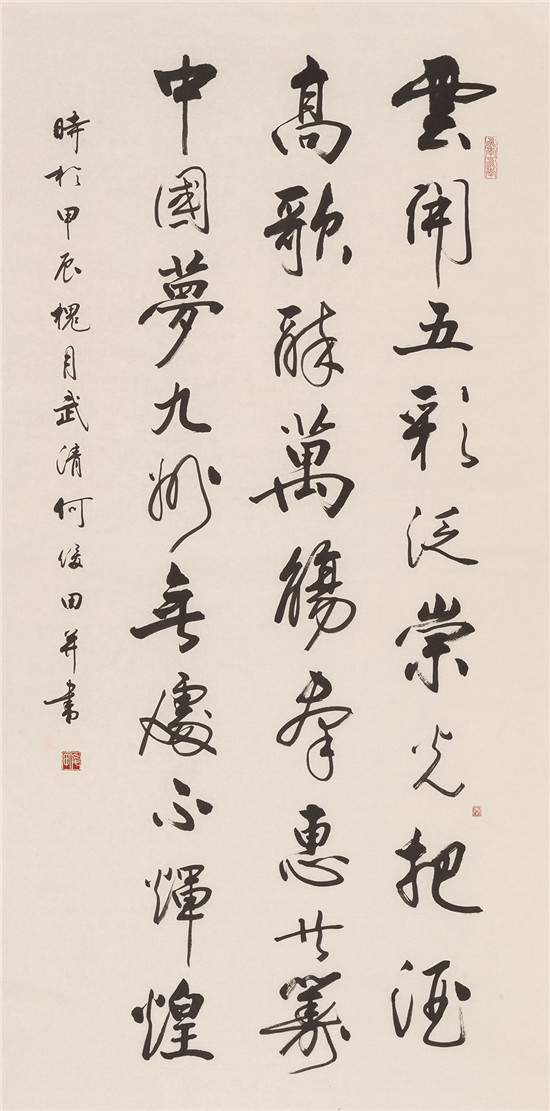 雲開五彩泛崇光把酒
高歌醉萬觴奉惠共築
中國夢九州無處不輝煌
時於甲辰槐月武清何俊田并書